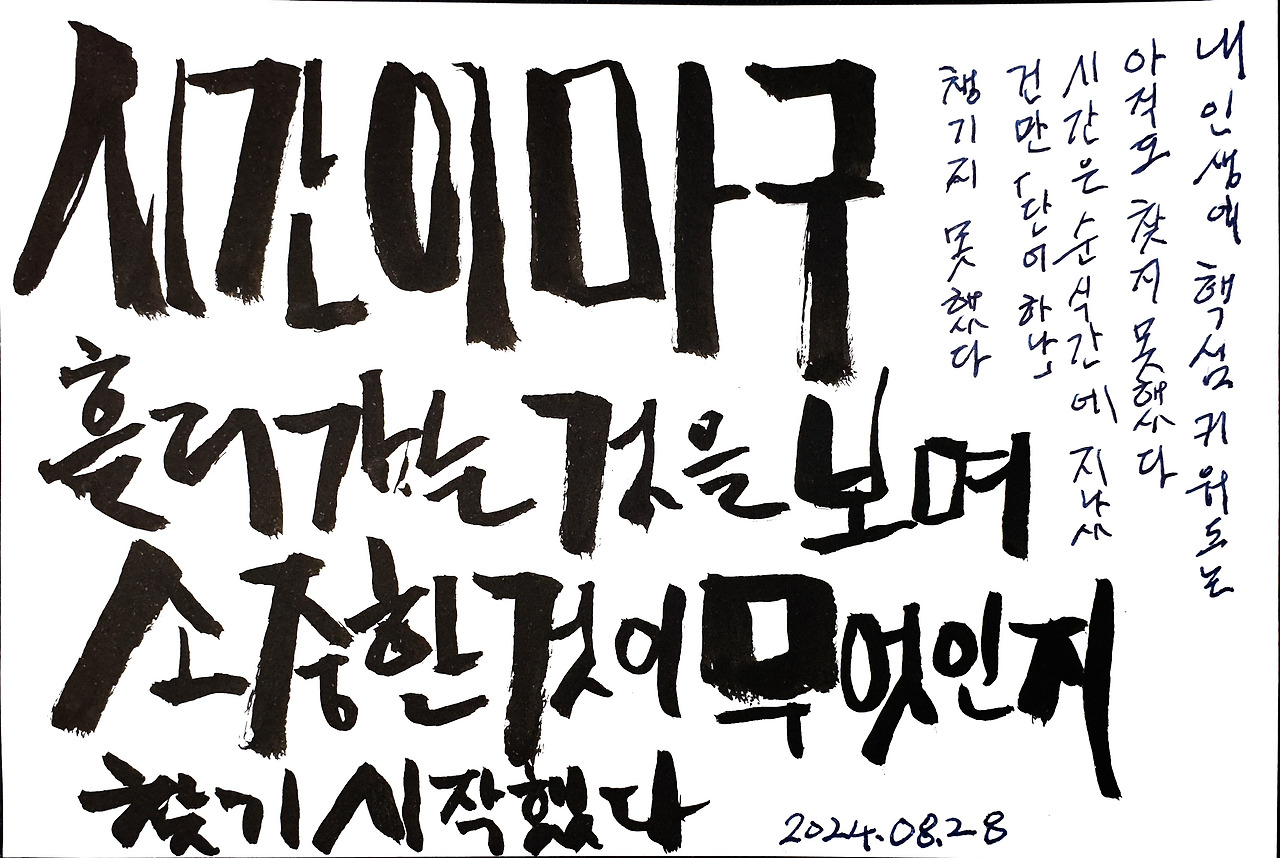 시간이 마구
흘러가는 것을 보며
소중한 것이 무엇인지
찾기 시작했다
내 인생에 핵심 귀워드는
아직도 찾지 못했다
시간은 순식간에 지났
건만 「단어 하나」
챙기지 못했다
2024.08.28